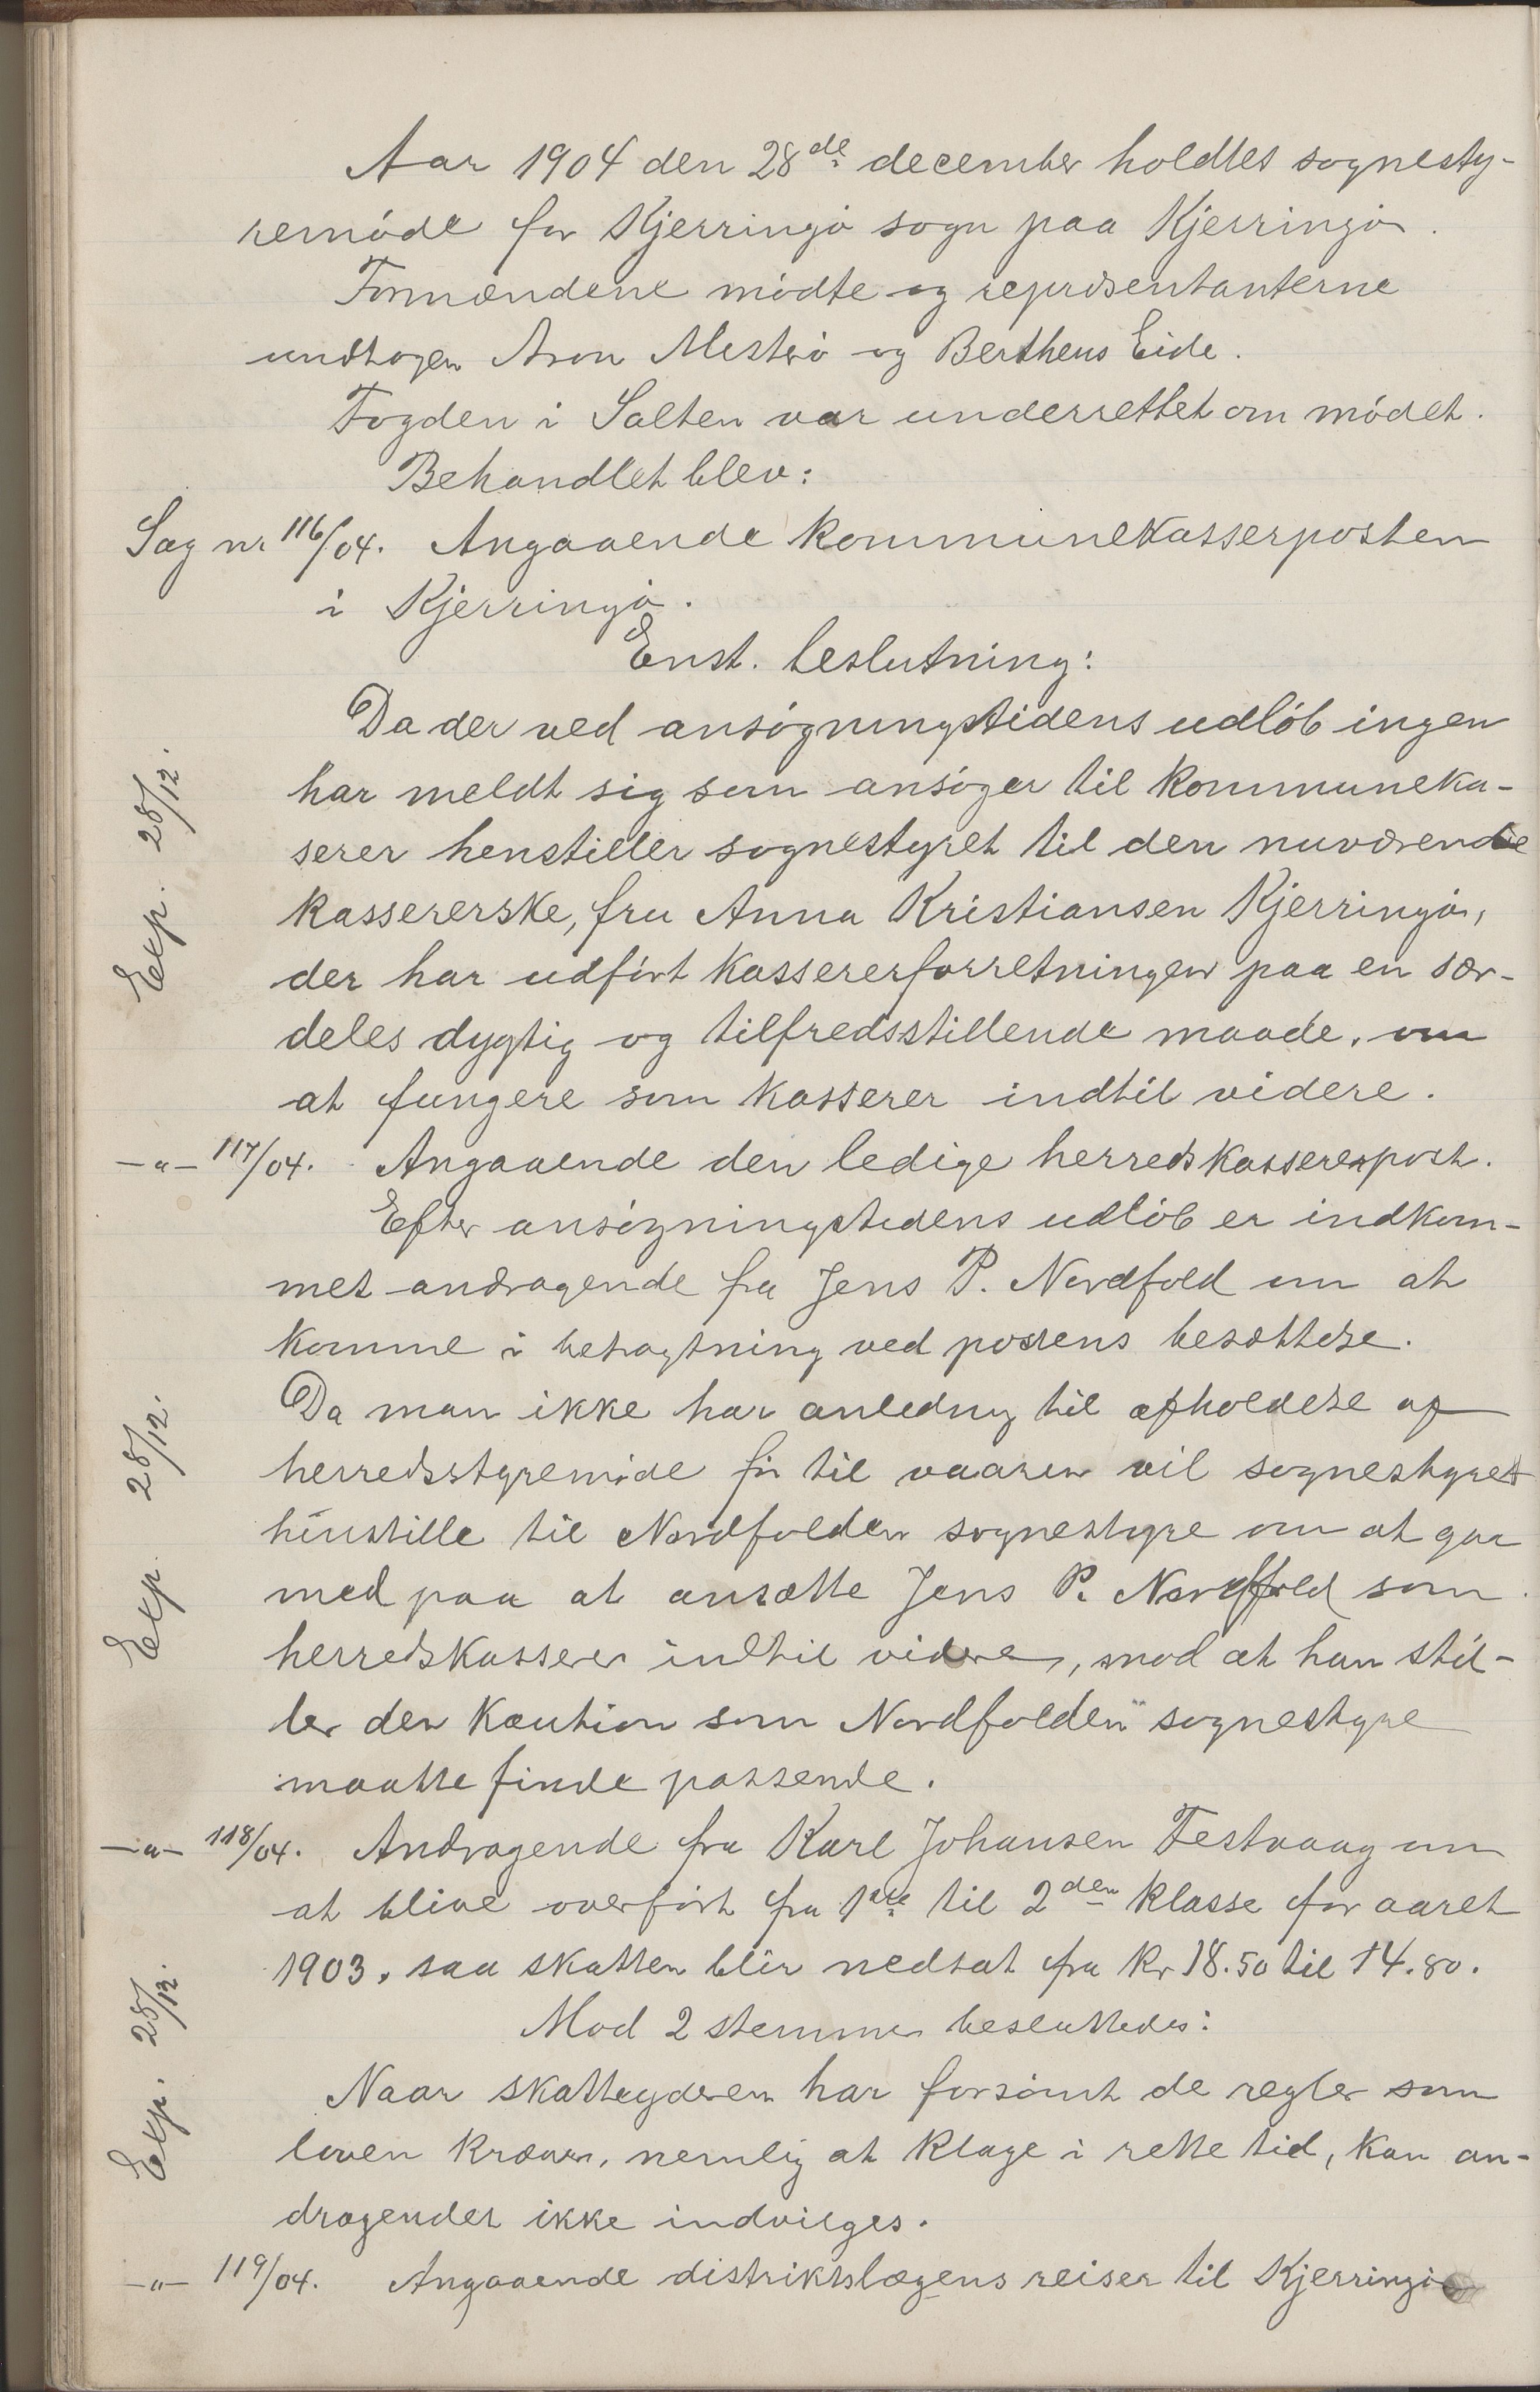 Aar 1904 den 28de december holdtes sognesty-
remöde for Kjerringö sogn paa Kjerringö.
Formændene mödte og repræsentanterne
undtagen Aron Mesterö og Bertheus Eide.
Fogden i Salten var underrettet om mödet.
Behandlet blev:
Sag nr 116/04. Angaaende kommunekasserposten
i Kjerringö.
Enst. beslutning:
Da der ved ansögningstidens udlöb ingen
har meldt sig som ansöger til kommuneka-
serer henstiller sognestyret til den nuværende
kassererske, fru Anna Kristiansen Kjerringö,
der har udfört kassererforretningen paa en sær-
deles dygtig og tilfredsstillende maade, om
at fungere som kasserer indtil videre.
Exp. 28/12.
-"- 117/04. Angaaende den ledige herredskassererpost.
Efter ansögningstidens udlöb er indkom-
met andragende fra Jens P. Nordfold om at
komme i betragtning ved postens besættelse.
Da man ikke har anledng til afholdelse af
herredsstyremöde för til vaaren vil sognestyret
hinstille til Nordfolden sognestyre om at gaa
med paa at ansætte Jens P. Nordfold som
herredskasserer indtil videre, mod at han stil-
ler den kaution som Nordfolden sognestyre
maatte finde passende.
Exp. 28/12.
-"- 118/04. Andragende fra Karl Johansen Festvaag om
at blive overfört fra 1ste til 2den klasse for aaret
1903, saa skatten blir nedsat fra kr 18.50 til 14.80.
Mod 2 stemmer besluttedes:
Naar skatteyderen har forsömt de regler som
loven kræver, nemlig at klage i rette tid, kan an-
dragendet ikke indvilges.
Exp. 28/12.
-"- 119/04. Angaaende distriktslægens reiser til Kjerringö